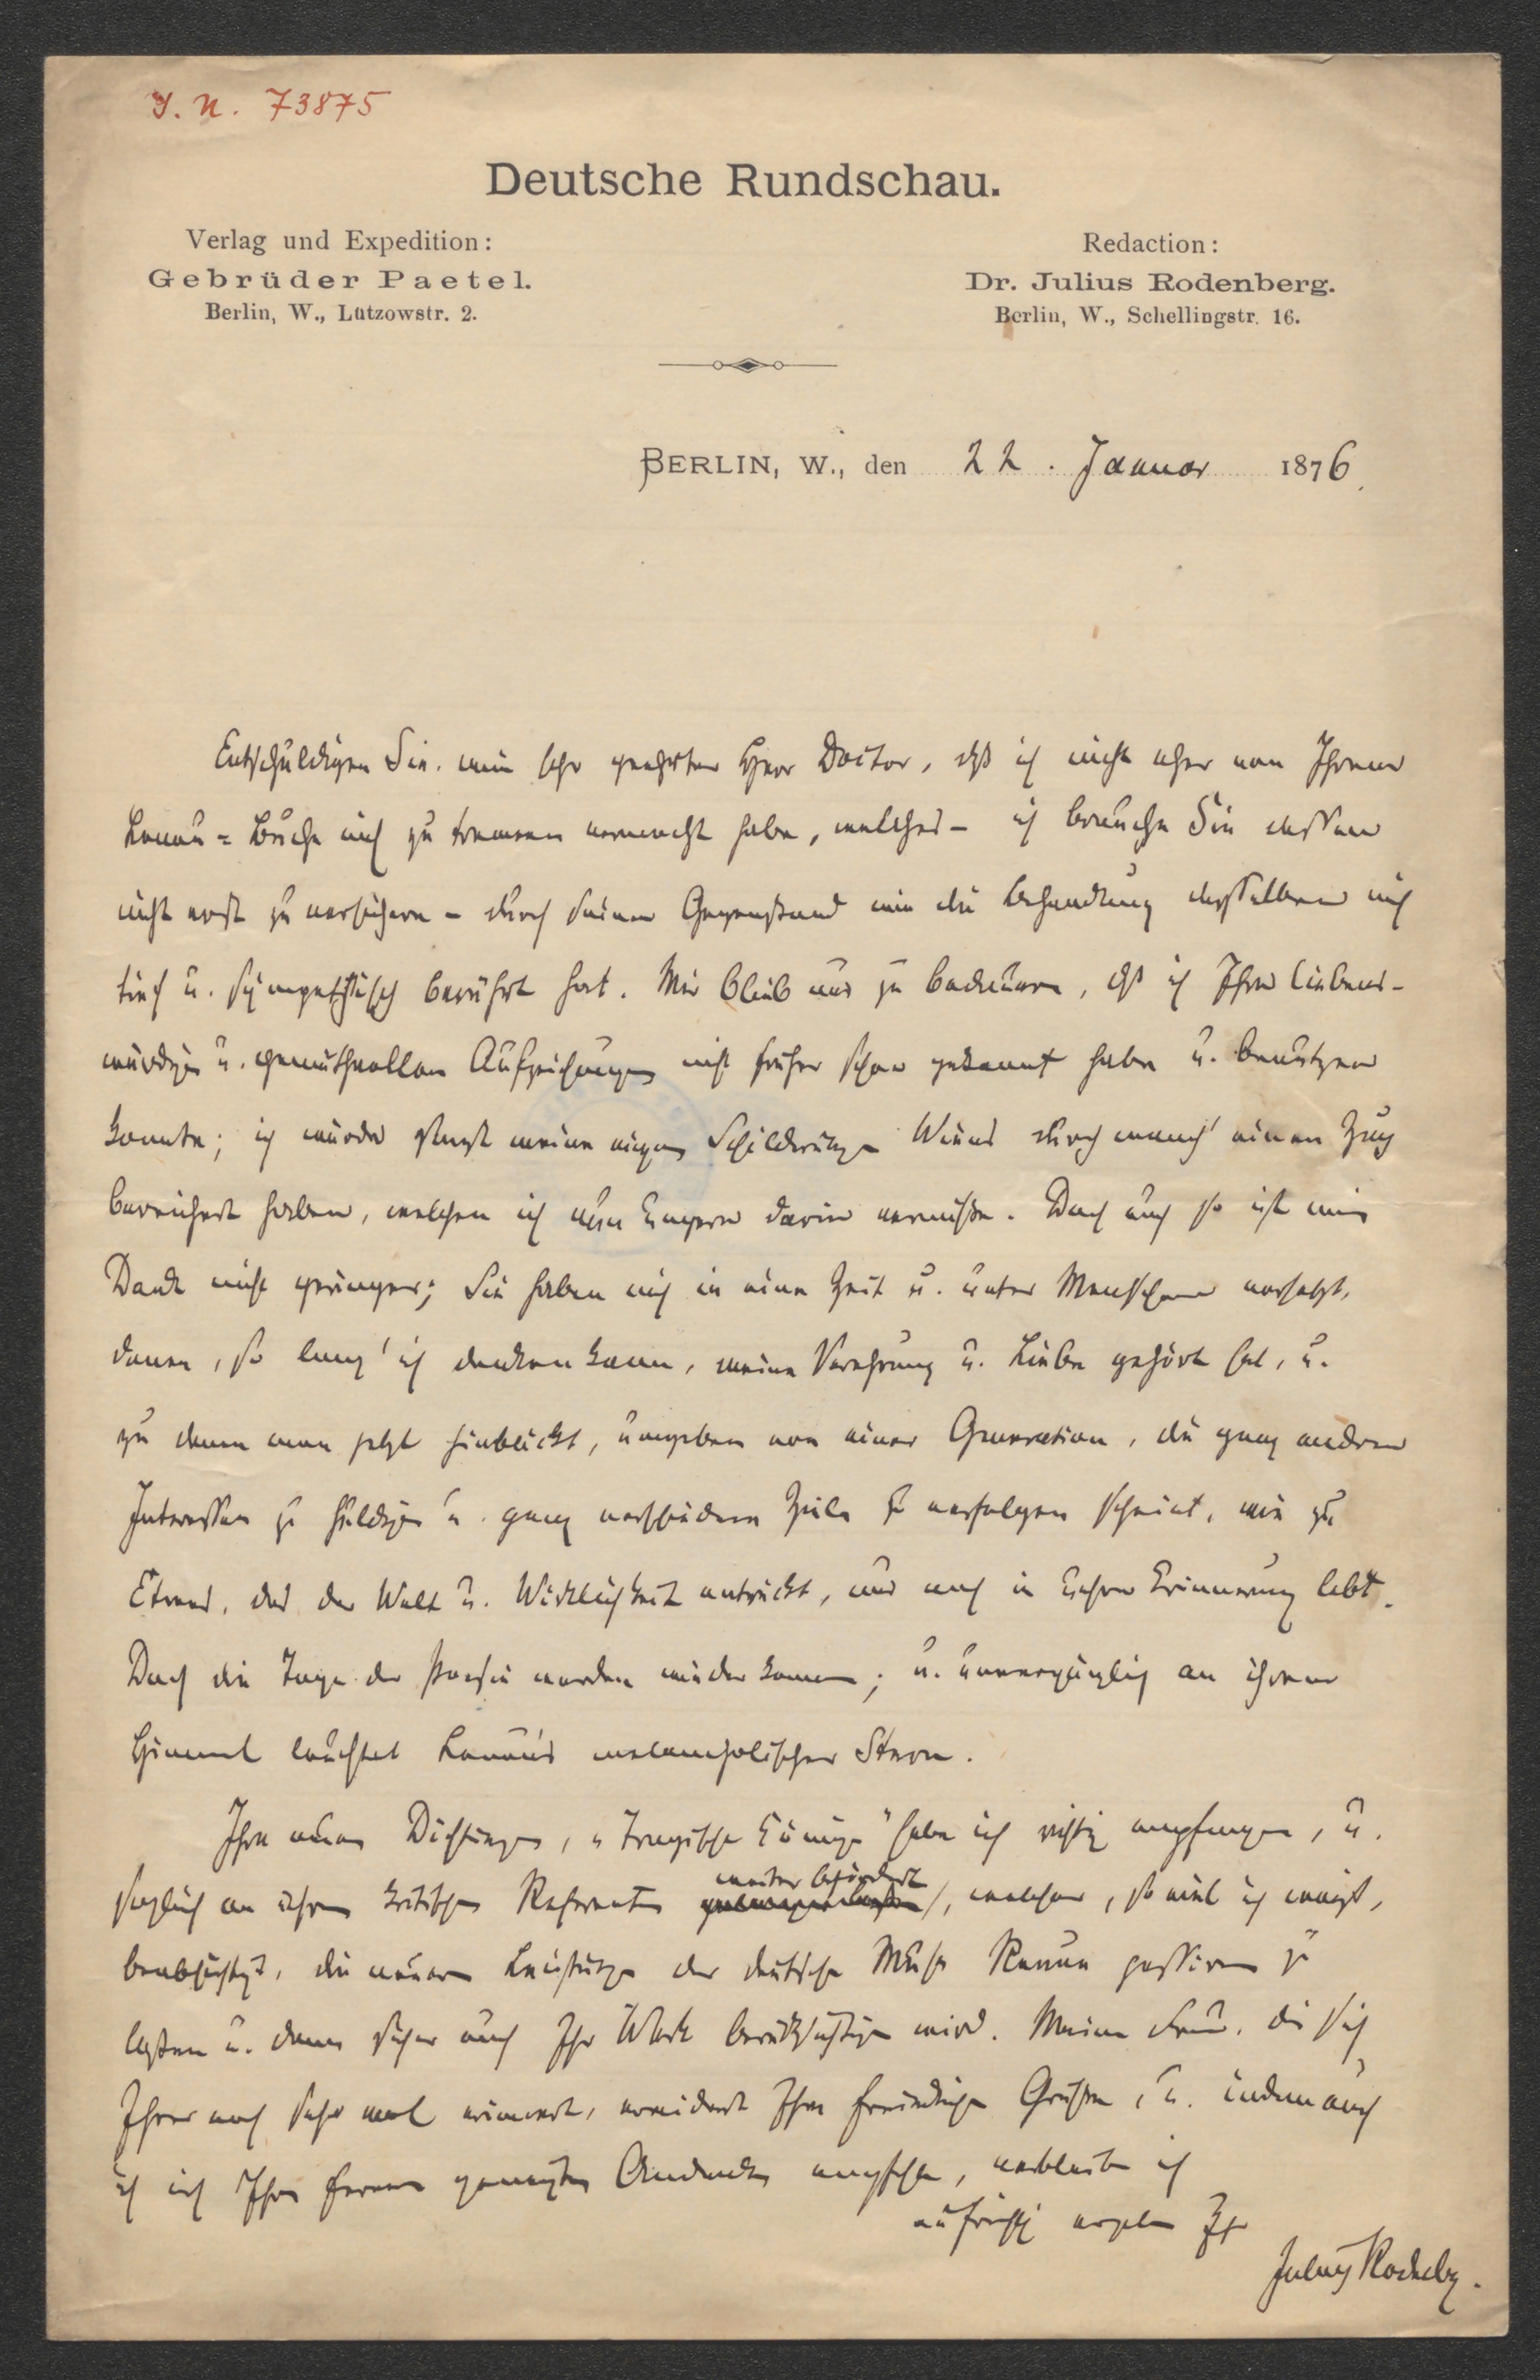 I. N. 73875
Deutsche Rundschau.
Verlag und Expedition:
Gebrüder Paetel.
Berlin, W., Lützowstr. 2.
Redaction:
Dr. Julius Rodenberg.
Berlin, W., Schellingstr. 16.
BERLIN, W., den 22. Januar 1876.
Entschuldigen Sie, mein sehr geehrter Herr Doctor, daß ich nicht eher von Ihrem
Lenau-Buche mich zu trennen vermocht habe, welches – ich brauche Sie dessen
nicht erst zu versichern – durch seinen Gegenstand wie die Behandlung desselben mich
tief u. sympathisch berührt hat. Mir blieb nur zu bedauern, daß ich Ihre liebens-
würdigen u. gemüthvollen Aufzeichnungen nicht früher schon gekannt habe u. benutzen
konnte; ich würde sonst meine eignen Schilderungen Wiens durch manch' einen Zug
bereichert haben, welchen ich nun ungern darin vermisse. Doch auch so ist mein
Dank nicht geringer; Sie haben mich in eine Zeit u. unter Menschen versetzt,
denen, so lang' ich denken kann, meine Verehrung u. Liebe gehört hat, u.
zu denen man jetzt hinblickt, umgeben von einer Generation, die ganz andren
Interessen zu huldigen u. ganz verschiedene Ziele zu verfolgen scheint, wie zu
Etwas, das der Welt u. Wirklichkeit entrückt, nur noch in Erinnerung lebt.
Doch die Tage der Poesie werden wieder kommen; u. unvergänglich an ihrem
Himmel leuchtet Lenau's melancholischer Stern.
Ihre neuen Dichtungen, „Tragische Könige" habe ich richtig empfangen, u.
sogleich an unsern kritischen Referenten weiter befördert, welcher, so viel ich weiß,
beabsichtigt, die neueren Leistungen der deutschen Muse Revue passiren zu
lassen u. dann sicher auch Ihr Werk berücksichtigen wird. Meine Frau, die sich
Ihrer noch sehr wol erinnert, erwidert Ihre freundlichen Grüße, u. indem auch
ich mich Ihrem ferneren geneigten Andenken empfehle, verbleibe ich
aufrichtig ergeben Ihr
Julius Rodenberg.